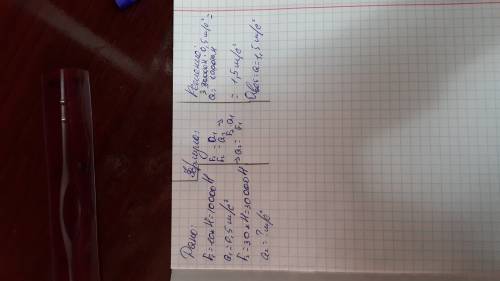 Дано:
F₁=10кН=10000Н
a₁=0,5 м/с²
F₂=30кН=30000Н
a₂=? м/с²
Формула:
F₁/F₂ = a₁/a₂ →
→ a₂ = F₂·a₁/F₁
Решение:
a₂ = 30000Н·0,5м/с²/10000Н =
= 1,5 м/с²
Ответ: a=1,5 м/с²